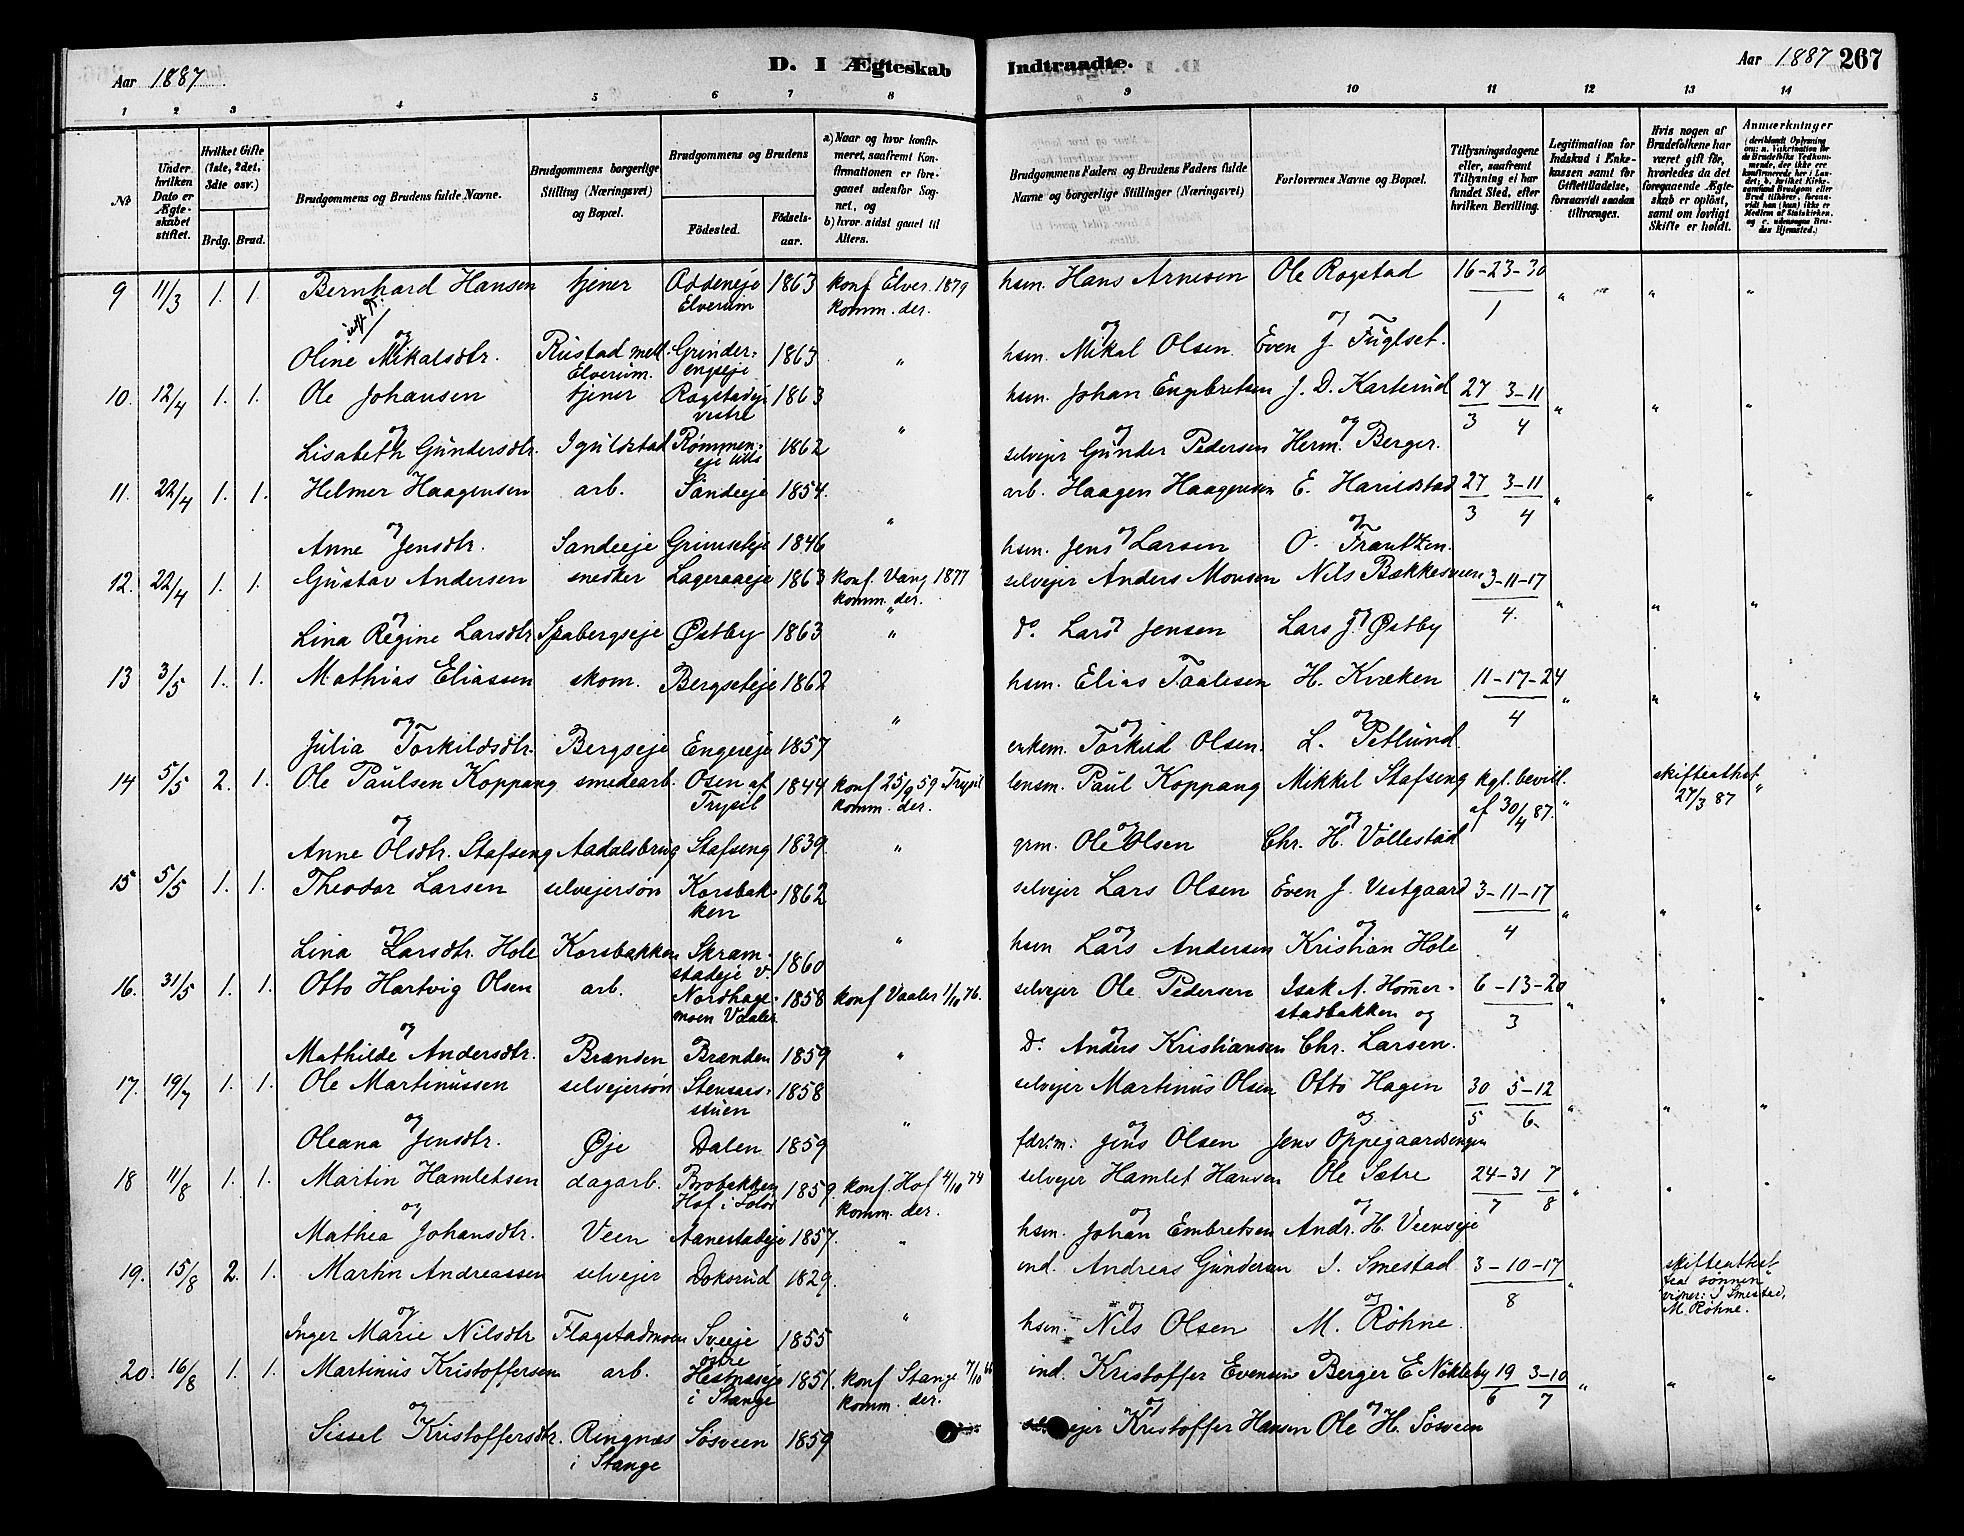 Aar 1887. D. I Ægteskab Indtraadte. Aar 1887 267
1 2 3 4 5 6 7 8 9 10 11 12 13 14
No
Under hvilken Dato er Ægteskabet stiftet.
Hvilket Gifte (1ste, 2det, 3die osv.)
Brdg. Brud.
Brudgommens og Brudens fulde Navne.
Brudgommens borgerlige Stilling (Næringsvei) og Bopæl.
Brudgommens og Brudens
Födested. Födselsaar.
a) Naar og hvor konfirmeret, saafremt Konfirmationen er foregaaet udenfor Sognet, og
b) hvor sidst gaaet til Alters.
Brudgommens Faders og Brudens Faders fulde Navne og borgerlige Stillinger (Næringsvei)
Forlovernes Navne og Bopæl.
Tillysningsdagene eller, saafremt Tillysning ei har fundet Sted, efter hvilken Bevilling.
Legitimation for Indskud i Enkekassen samt for Giftetilladelse, forsaavidt saadan tiltrænges.
Hvis nogen af Brudefolkene har været gift för, hvorledes da det foregaaende Ægteskab er oplöst, samt om lovligt Skifte er holdt.
Anmærkninger
9 11/3 1. 1. Bernhard Hansen tjener Oddeneje Elverum 1863 konf Elver. 1879 komm. der. hsm. Hans Arnesen Ole Rogstad 16-23-30 1 " " "
og
Oline Mikalsdtr. Rustad mell. Elverum. Grinderengseje 1863 " hsm. Mikal Olsen. og Even J. Fuglset.
10. 12/4 1. 1. Ole Johansen tjener Rogstadeje vestre 1863 hsm. Johan Engebretsen J. D. Karterud 27/3 3-11/4 " " "
og
Lisabeth Gundersdtr. Igulsstad Rømmeneje lille 1862 " selvejer Gunder Pedersen og Herm. Berger.
11. 22/4 1. 1. Helmer Haagensen arb. Sandeeje 1854. arb. Haagen Haagensen E. Harildstad 27/3 3-11/4 " " "
og
Anne Jensdtr. Sandeeje Grimseteje 1846 " hsm. Jens Larsen og O. Frantzen.
12. 22/4 1. 1. Gustav Andersen snedker Lageraaeje 1863 konf. Vang 1877 komm. der. selvejer Anders Monsen Nils Bækkesveen 3-11-17 4. " " "
og
Lina Regine Larsdtr. Spabergseje Østby 1863 " do. Lars Jensen og Lars J. Østby
13 3/5 1. 1. Mathias Eliassen skom. Bergseteje 1862 hsm. Elias Taalesen H. Kvæken 11-17-24 4 " " "
og
Julia Torkildsdtr. Bergseje Engereje 1857 " enkem. Torkild Olsen. og L. Petlund
14 5/5 2. 1. Ole Paulsen Koppang smedearb. Osen af Trysil 1844 konf 25/9 59 Trysil komm. der. lensm. Paul Koppang Mikkel Stafseng kgl. bevill. af 30/4 87. " skifteattest 27/3 87 "
og
Anne Olsdtr. Stafseng Aadalsbrug Stafseng 1839. " grm. Ole Olsen og Chr. H. Vollestad
15 5/5 1. 1. Theodor Larsen selvejersøn Korsbakken 1862 selvejer Lars Olsen Even J. Vestgaard 3-11-17 4 " " "
og
Lina Larsdtr. Hole Korsbakken Skramstadeje v. 1860 " hsm Lars Andersen og Kristian Hole
16. 31/5 1. 1. Otto Hartvig Olsen arb. Nordhagemoen Vaaler 1858 konf Vaaler 1/10 76. selvejer Ole Pedersen Isak A. Hommerstadbakken og 6-13-20 3 " " "
og
Mathilde Andersdtr. Brænden Brænden 1859 " Do. Anders Kristiansen Chr. Larsen.
17. 19/7 1. 1. Ole Martinussen selvejersøn Stensaasstuen 1858 selvejer Martinus Olsen Otto Hagen 30/5 5-12/6. " " "
og
Oleana Jensdtr. Øje Dalen 1859 " Jens Olsen og Jens Oppegaardsengen
18 11/8 1. 1. Martin Hamletsen dagarb. Brobakken Hof i Solør 1859. konf. Hof 4/10 74 komm. der. selvejer Hamlet Hansen Ole Sætre 24-31/7 7/8 " " "
og
Mathea Johansdtr. Veen Aanestadeje 1857. " hsm. Johan Embretsen og Andr. H. Veenseje
19. 15/8 2. 1. Martin Andreassen selvejer Doksrud 1829. ind. Andreas Gundersen J. Smestad 3-10-17 8 " skifteattest fra sønnen vidner: J Smestad, M Røhne.
og
Inger Marie Nilsdtr Flagstadmoen Sveeje øvre 1855 " hsm. Nils Olsen og M. Røhne.
20. 16/8 1. 1. Martinus Kristoffersen arb. Hestnæseje i Stange 1851. konf Stange 7/10 66 komm. der. ind. Kristoffer Evensen Berger E Nökleby 19/6 3-10/7 " " "
og
Sissel Kristoffersdtr. Ringnæs i Stange Søsveen 1859 selvejer Kristoffer Hansen og Ole H. Søsveen